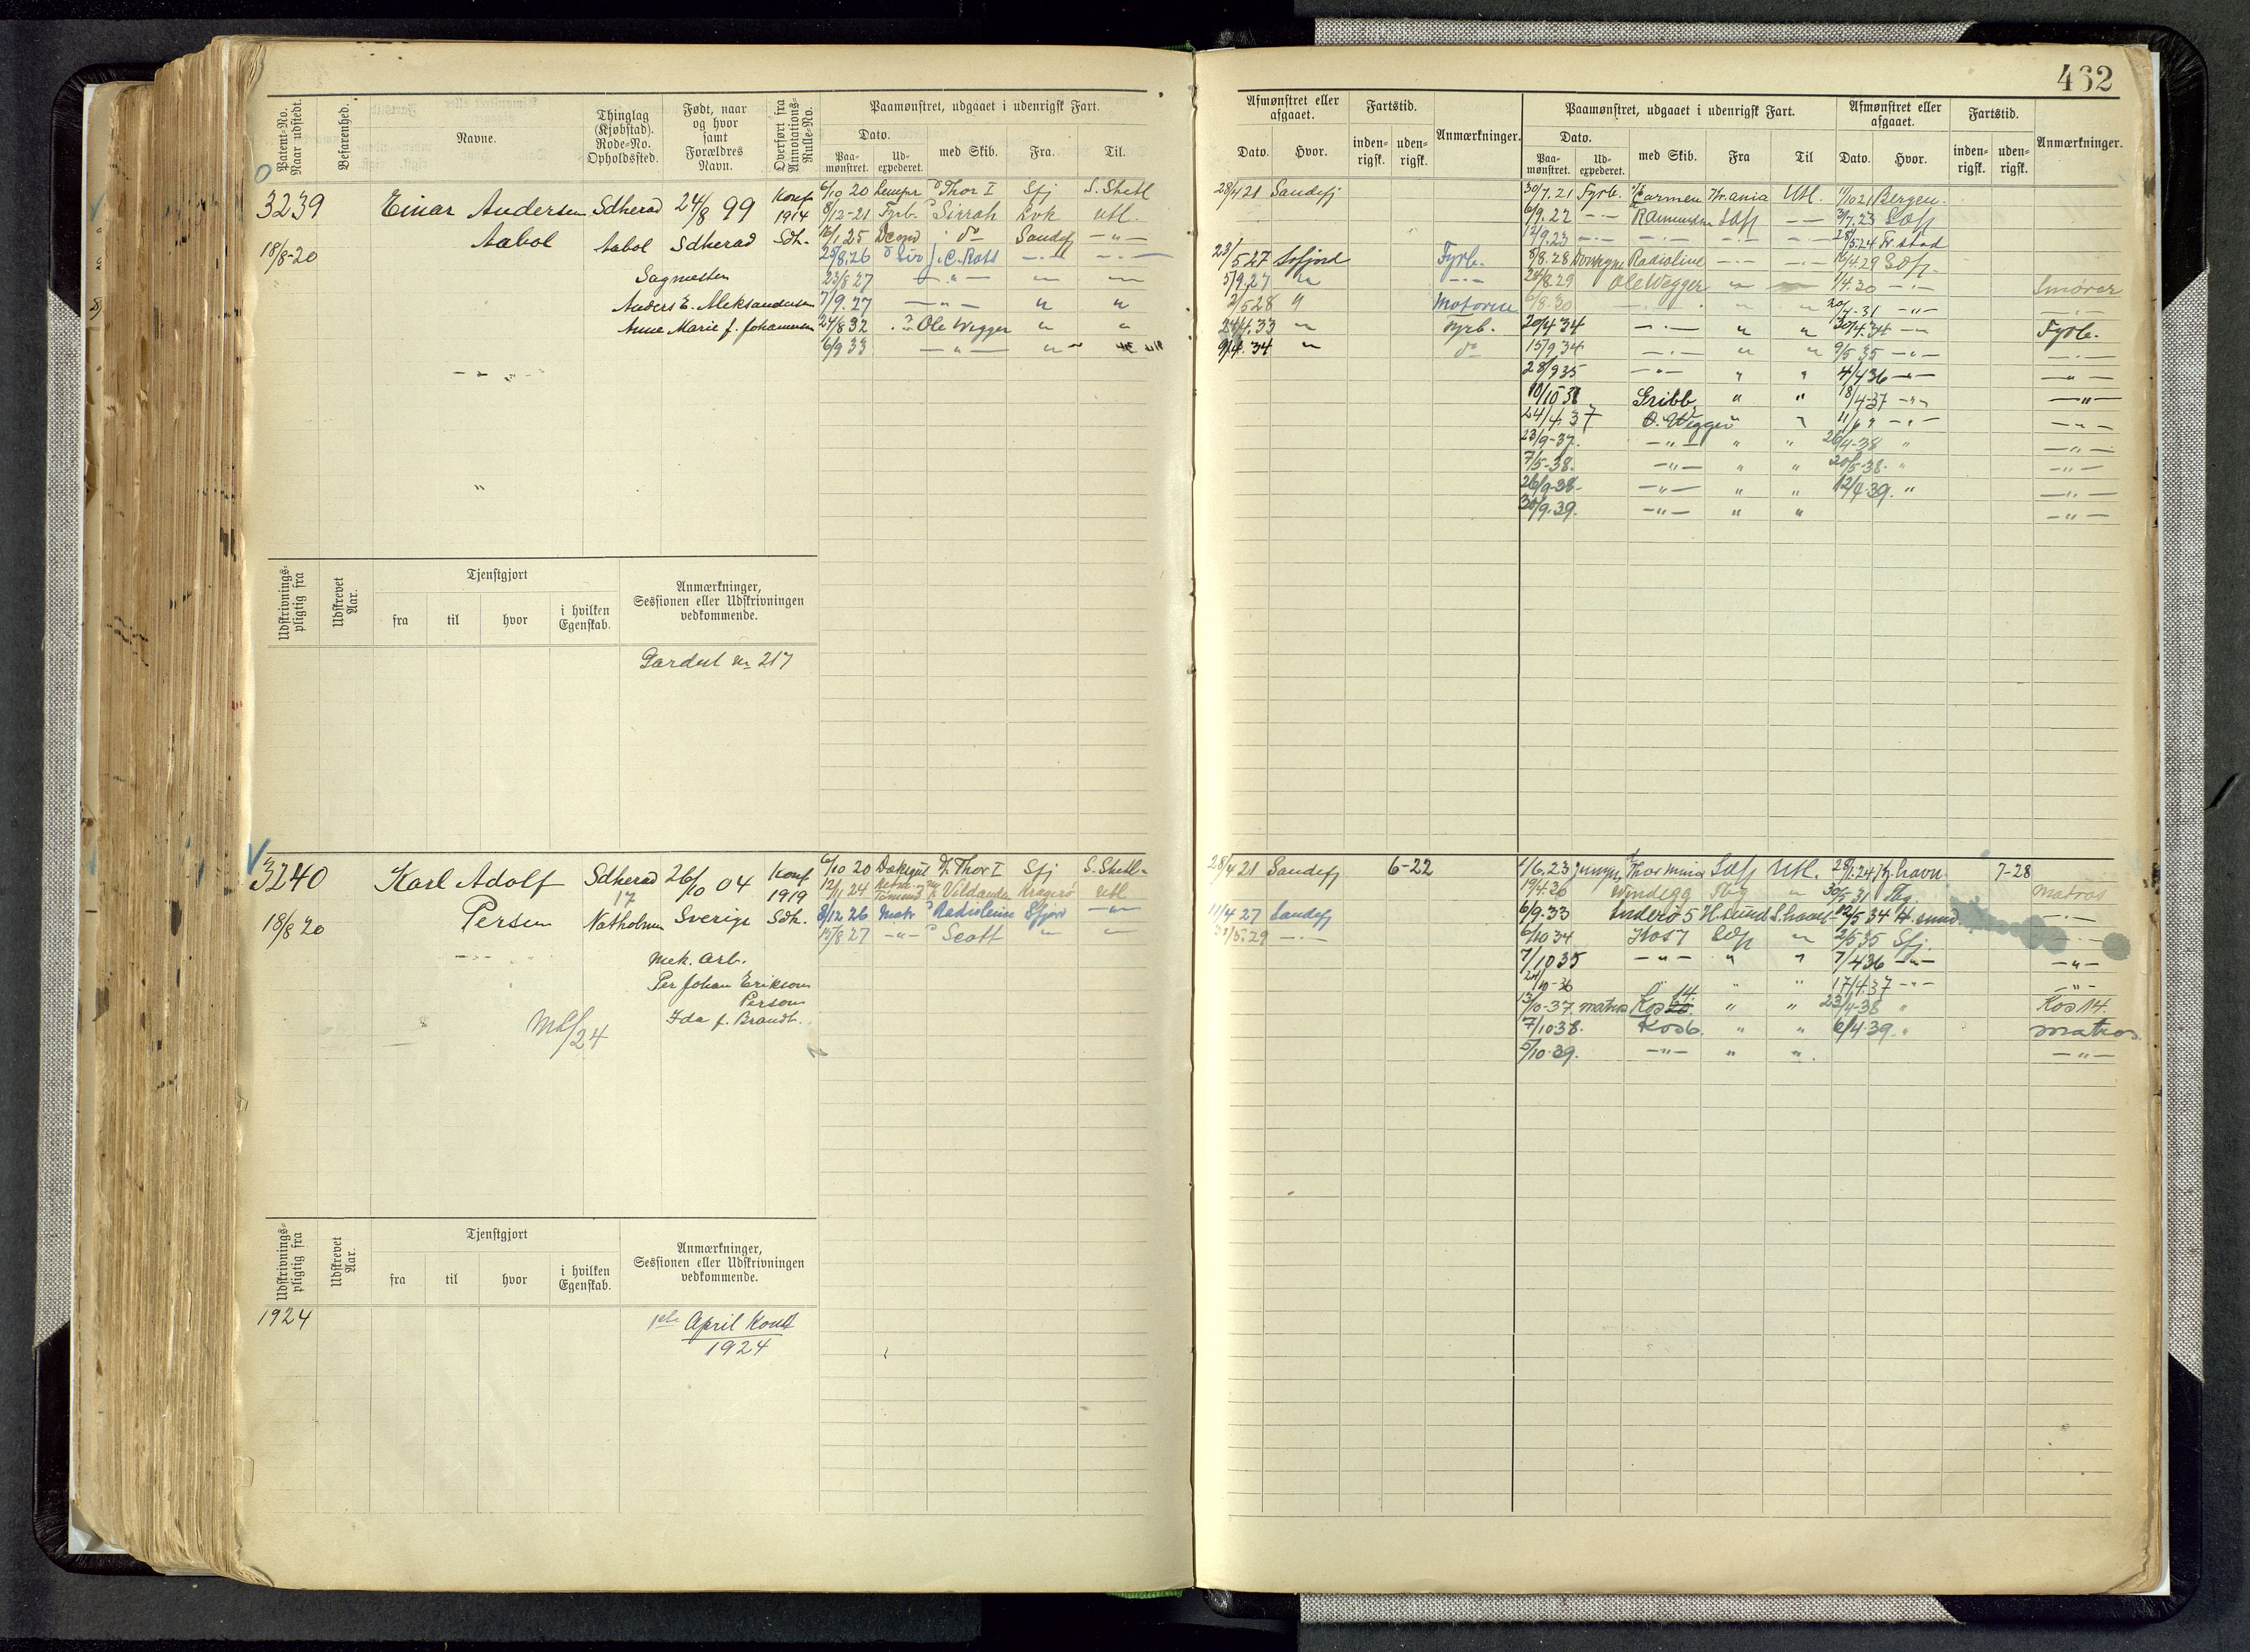 462
Patent-No. Naar udstedt.
Befarenhed.
Navne.
Thinglag (Kjøbstad). Rode-No. Opholdssted.
Født, naar og hvor samt Forældres Navn.
Overført fra Annotations-Rulle-No.
Paamønstret, udgaaet i udenrigsk Fart.
Dato.
Paa-mønstret.
Ud-expederet.
med Skib.
Fra.
Til.
Afmønstret eller afgaaet.
Dato.
Hvor.
Fartstid.
inden-rigsk.
uden-rigsk.
Anmærkninger.
Paamønstret, udgaaet i udenrigsk Fart.
Dato.
Paa-mønstret.
Ud-expederet.
med Skib.
Fra
Til
Afmønstret eller afgaaet.
Dato.
Hvor.
Fartstid.
inden-rigsk.
uden-rigsk.
Anmærkninger.
3239 Einar Andersen Sdherad 24/8 99 Konf 1914 Sdh.
18/8-20 Aabol Aabol Sdherad
Sagmester
Anders E. Aleksandersen
Anne Marie f. Johannesen
6/10 20 Lempr Thor I Sfj S. Shetl
8/12-21 Fyrb. Sirrah Lvk utl.
16/1 25 do Sandefj -"-
25/8.26 C. Ross
23/8 27 -"-
7/9.27 -"- " "
24/8 32 Ole Wegger " "
6/9 33 -"- "
28/4 21 Sandefj
23/5 27 Fyrb.
5/9.27 "
2/5 28 "
24/4.33 " Fyrb.
9/4.34 " do
30/7.21 Fyrb. Carmen Kr.ania Utl. 11/10 21 Bergen.
6/9.22 -"- 2/7.23
12/9.23 -"- 28/5.24 Fr.stad
8/8.28 Radioline 16/4.29
24/8.29 Ole Wegger " 1/4.30 Smører
6/8.30 " 20/4-31 -"-
20/4 34 -"- " " 30/4.34 Fyrb.
15/9 34 -"- " " 9/5 35 -"-
28/9 35 -"- " " 4/4 36 -"- -"-
10/10 36 Gribb " " 18/4-37 -"- -"-
24/4.37 O. Wegger " 11/6 " -"- -"-
23/9-37. -"- " " 20/4-38 " -"-
7/5-38. -"- " " 20/5-38. " -"-
26/9-38- -"- " " 12/4.39. " -"-
30/9.39. -"- " " -"-
Udskrivnings-pligtig fra
Udskrevet Aar.
Tjenstgjort
fra
til
hvor
i hvilken Egenskab.
Anmærkninger, Sessionen eller Udskrivningen vedkommende.
217
3240 Karl Adolf Sdherad 26/10 04 Konf 1919 Sdh.
17
18/8 20 Persen Natholmen Sverige
Mek. Arb.
Per Johan Erikson
Person
Ida f. Brandt.
/24
6/10 20 Thor I Sfj S. Shetl.
12/1 24 Vildanden Kragerø utl
8/12 26 Matr Radioleine Sfjord -"-
15/8 27 -"- Scott " "
28/4 21 Sandefj 6-22
11/4 27 Sandefj
31/5.29 -"-
1/6.23 Jungm Thormina Utl. 28/1.24 Kj.havn 7-28
19/4.30 Vindegg Tbg " 30/5-31 Tbg. Matros
6/9.33 Sydero 5 H.sund S.havet 12/5 34 H.sund -"-
6/10 34 Kos 7 " 2/5 35 Sfj. -"-
7/10 35 -"- " " 7/4 36 -"- -"-
24/10-36 " " " 17/4.37 -"- -"-
13/10-37. matros Kos 14. " " 23/4-38 " Kos 14.
7/10 38. Kos 6. " " 6/4.39. " matros
5/10.39. -"- " " -"-
Udskrivnings-pligtig fra
Udskrevet Aar.
Tjenstgjort
fra
til
hvor
i hvilken Egenskab.
Anmærkninger, Sessionen eller Udskrivningen vedkommende.
1924
1ste April Kont
1924